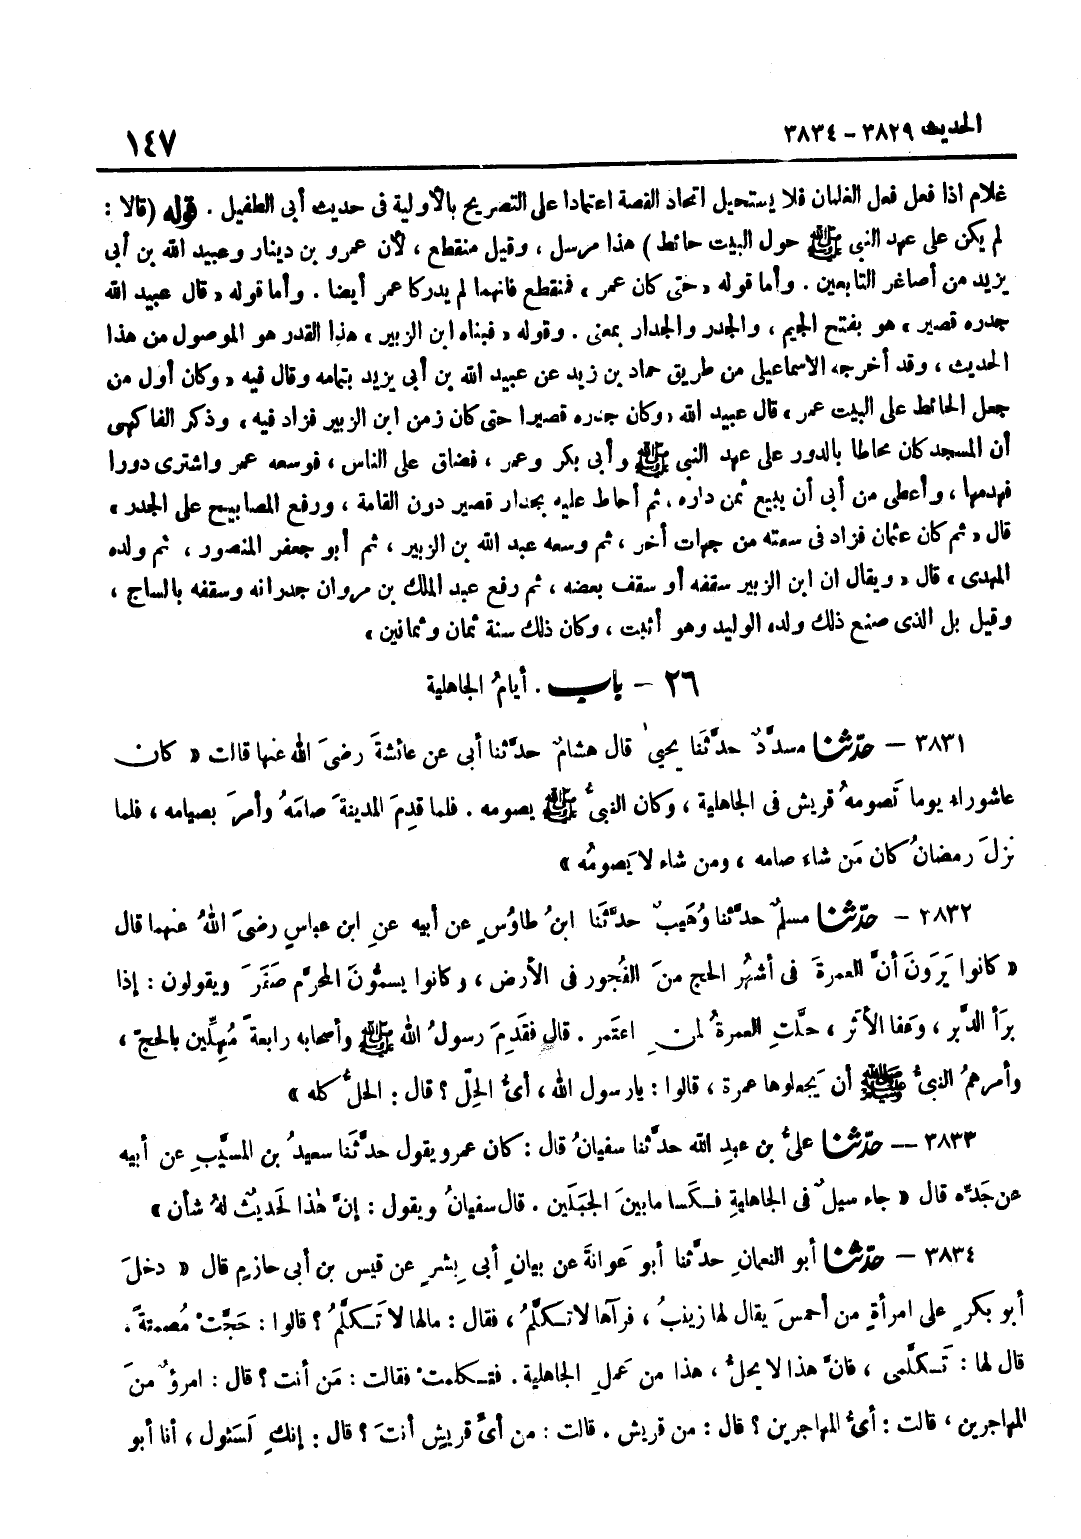 الحديث ٣٨٢٩ - ٣٨٣٤
١٤٧
غلام اذا فعل فعل الغلمان فلا يستحيل اتحاد القصة اعتمادا على التصريح بالأولية فى حديث أبى الطفيل . قوله (قالا :
لم يكن على عهد النبى ﷺ حول البيت حائط) هذا مرسل ، وقيل منقطع ، لأن عمرو بن دينار وعبيد الله بن أبى
يزيد من أصاغر التابعين . وأما قوله « حتى كان عمر » فمنقطع فانهما لم يدركا عمر أيضا . وأما قوله « قال عبيد الله
جدره قصير » هو بفتح الجيم ، والجدر والجدار بمعنى . وقوله « فبناه ابن الزبير » هذا القدر هو الموصول من هذا
الحديث ، وقد أخرجه الاسماعيلى من طريق حماد بن زيد عن عبيد الله بن أبى يزيد بتمامه وقال فيه « وكان أول من
جعل الحائط على البيت عمر » قال عبيد الله « وكان جدره قصيرا حتى كان زمن ابن الزبير فزاد فيه » وذكر الفاكهى
أن المسجد كان محاطا بالدور على عهد النبى ﷺ وأبى بكر وعمر ، فضاق على الناس ، فوسعه عمر واشترى دورا
فهدمها ، وأعطى من أبى أن يبيع ثمن داره . ثم أحاط عليه بجدار قصير دون القامة ، ورفع المصابيح على الجدر »
قال « ثم كان عثمان فزاد فى سعته من جهات أخر ، ثم وسعه عبد الله بن الزبير ، ثم أبو جعفر المنصور ، ثم ولده
المهدى » قال « ويقال ان ابن الزبير سقفه أو سقف بعضه ، ثم رفع عبد الملك بن مروان جدرانه وسقفه بالساج ،
وقيل بل الذى صنع ذلك ولده الوليد وهو أثبت ، وكان ذلك سنة ثمان وثمانين »
٢٦ - باب . أيامُ الجاهلية
٣٨٣١ - حدّثنا مسدَّدٌ حدَّثَنا يحيىٰ قال هشامٌ حدَّثنا أبى عن عائشةَ رضىَ اللهُ عنها قالت « كان
عاشوراء يوما تَصومهُ قريش فى الجاهلية ، وكان النبىُّ ﷺ يصومه . فلما قدِمَ المدينةَ صامَهُ وأمرَ بصيامه ، فلما
نزلَ رمضانُ كان مَن شاء صامه ، ومن شاء لا يَصومُه »
٣٨٣٢ - حدّثنا مسلمٌ حدَّثنا وُهَيبٌ حدَّثَنا ابنُ طاوُسٍ عن أبيه عنِ ابن عباسٍ رضىَ اللهُ عنهما قال
« كانوا يَرَونَ أنَّ العمرةَ فى أشهُرِ الحج منَ الفُجور فى الأرض ، وكانوا يسمُّونَ المحرَّم صَفَرَ ويقولون : إذا
برَأ الدَّبر ، وعَفا الأثر ، حلَّتِ العمرةُ لمنِ اعتَمر . قال فقَدِمَ رسولُ الله ﷺ وأصحابه رابعةً مُهِلِّين بالحجّ ،
وأمرهمُ النبىُّ ﷺ أن يَجعلوها عمرة ، قالوا : يا رسول الله ، أىُّ الحِلّ ؟ قال : الحلُّ كله »
٣٨٣٣ - حدّثنا علىُّ بن عبدِ الله حدَّثنا سفيانُ قال : كان عمرو يقول حدَّثَنا سعيدُ بن المسيَّبِ عن أبيه
عن جَدِّه قال « جاء سيلٌ فى الجاهليةِ فكَسا ما بينَ الجبَلَين . قال سفيانُ ويقول : إنَّ هٰذا لَحديثٌ لهُ شأن »
٣٨٣٤ - حدّثنا أبو النعمانِ حدَّثنا أبو عَوانةَ عن بيانٍ أبى بِشرٍ عن قيس بن أبى حازمٍ قال « دخلَ
أبو بكرٍ على امرأةٍ من أحمسَ يقال لها زينبُ ، فرآها لا تكلَّمُ ، فقال : مالها لا تَكلَّمُ ؟ قالوا : حَجَّتْ مُصمتةً .
قال لها : تَكلَّمى ، فانَّ هذا لا يحلُّ ، هذا من عَملِ الجاهلية . فتكلمتْ فقالت : مَن أنت ؟ قال : امرؤٌ منَ
المهاجرين ، قالت : أىُّ المهاجرين ؟ قال : من قريش . قالت : من أىِّ قريشٍ أنتَ ؟ قال : إنكِ لَسَئول ، أنا أبو